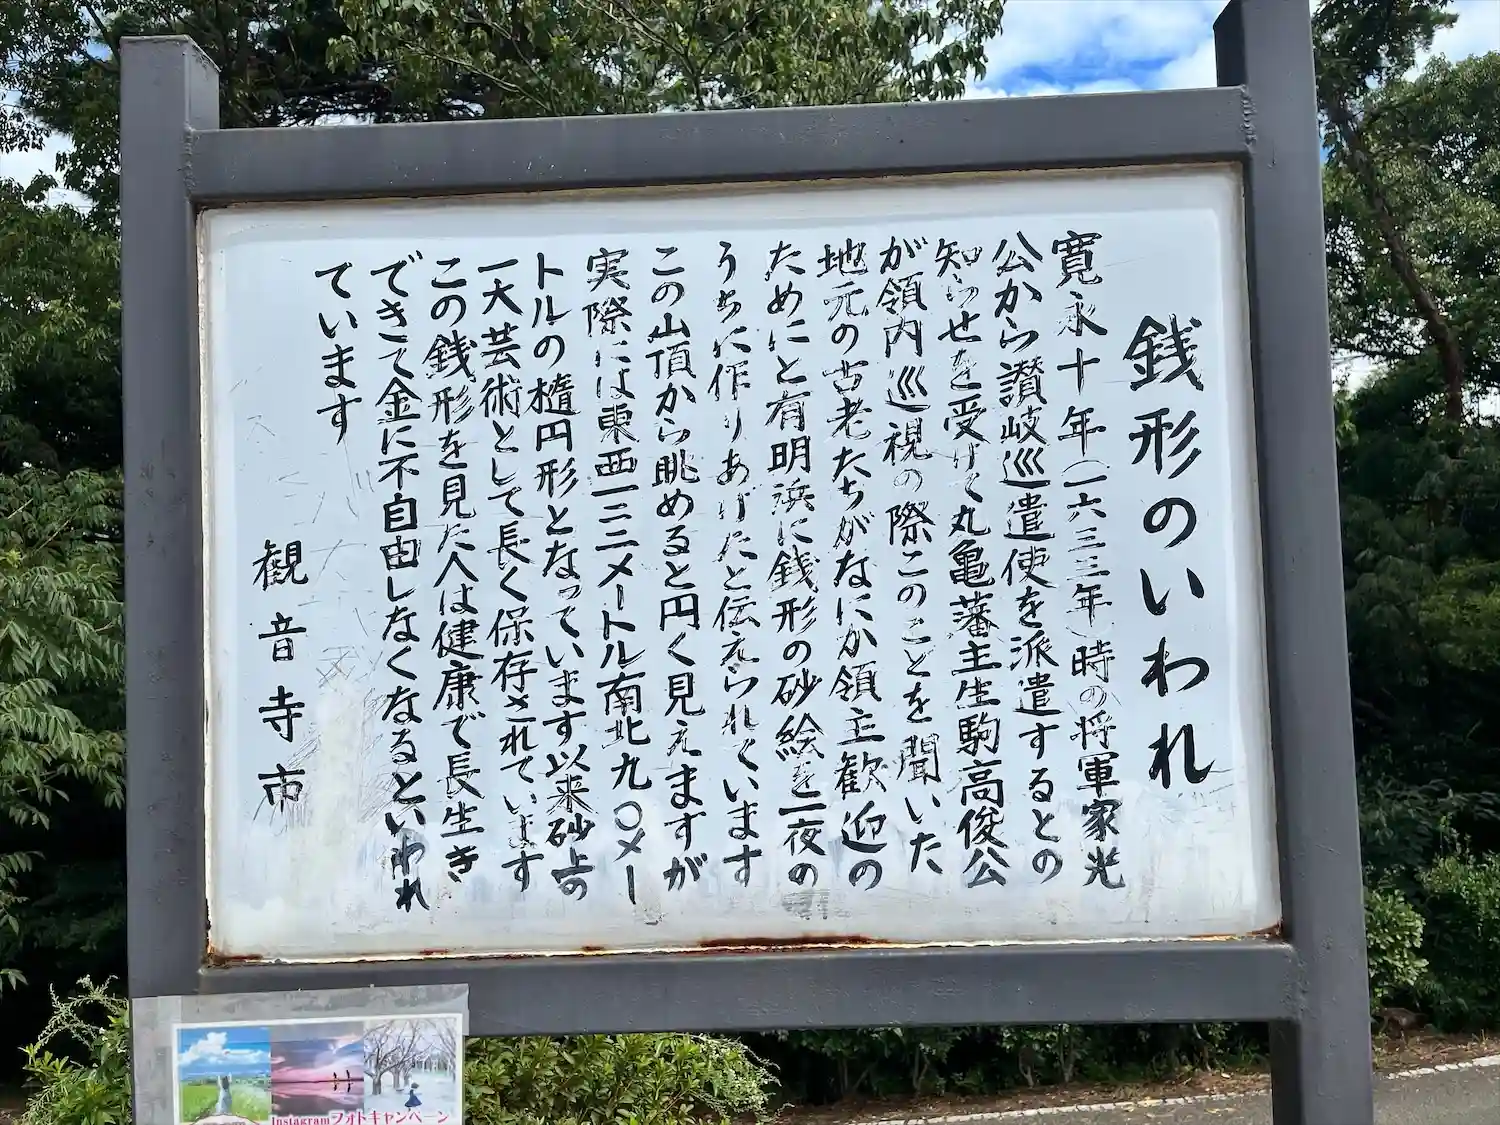 銭形のいわれ
寛永十年(一六三三年)時の将軍家光
公から讃岐巡遣使を派遣するとの
知らせを受けて丸亀藩主生駒高俊公
が領内巡視の際このことを聞いた
地元の古老たちがなにか領主歓迎の
ためにと有明浜に銭形の砂絵を一夜の
うちに作りあげたと伝えられています
この山頂から眺めると円く見えますが
実際には東西一二二メートル南北九〇メー
トルの楕円形となっています以来砂上の
一大芸術として長く保存されています
この銭形を見た人は健康で長生き
できて金に不自由しなくなるといわれ
ています
観音寺市
Instagramフォトキャンペーン